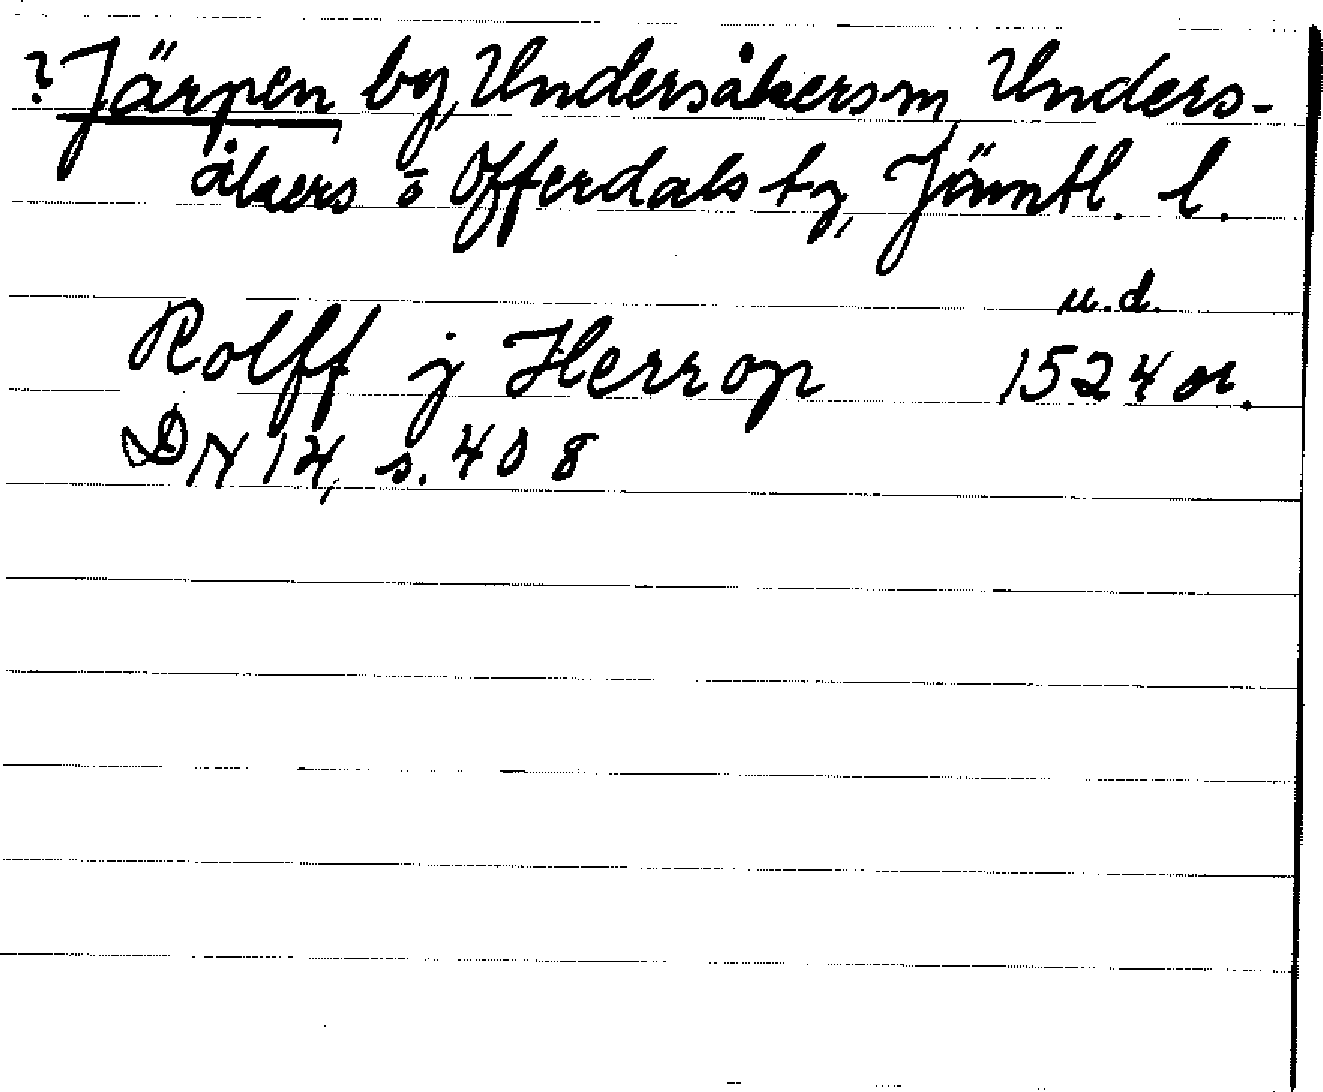 ? Järpen by, Undersåkers sn, Unders-
åkers o Offerdals tg, Jämtl. l.
u.d.
Rolff j Herrop 1524 or.
DN 14, s. 408